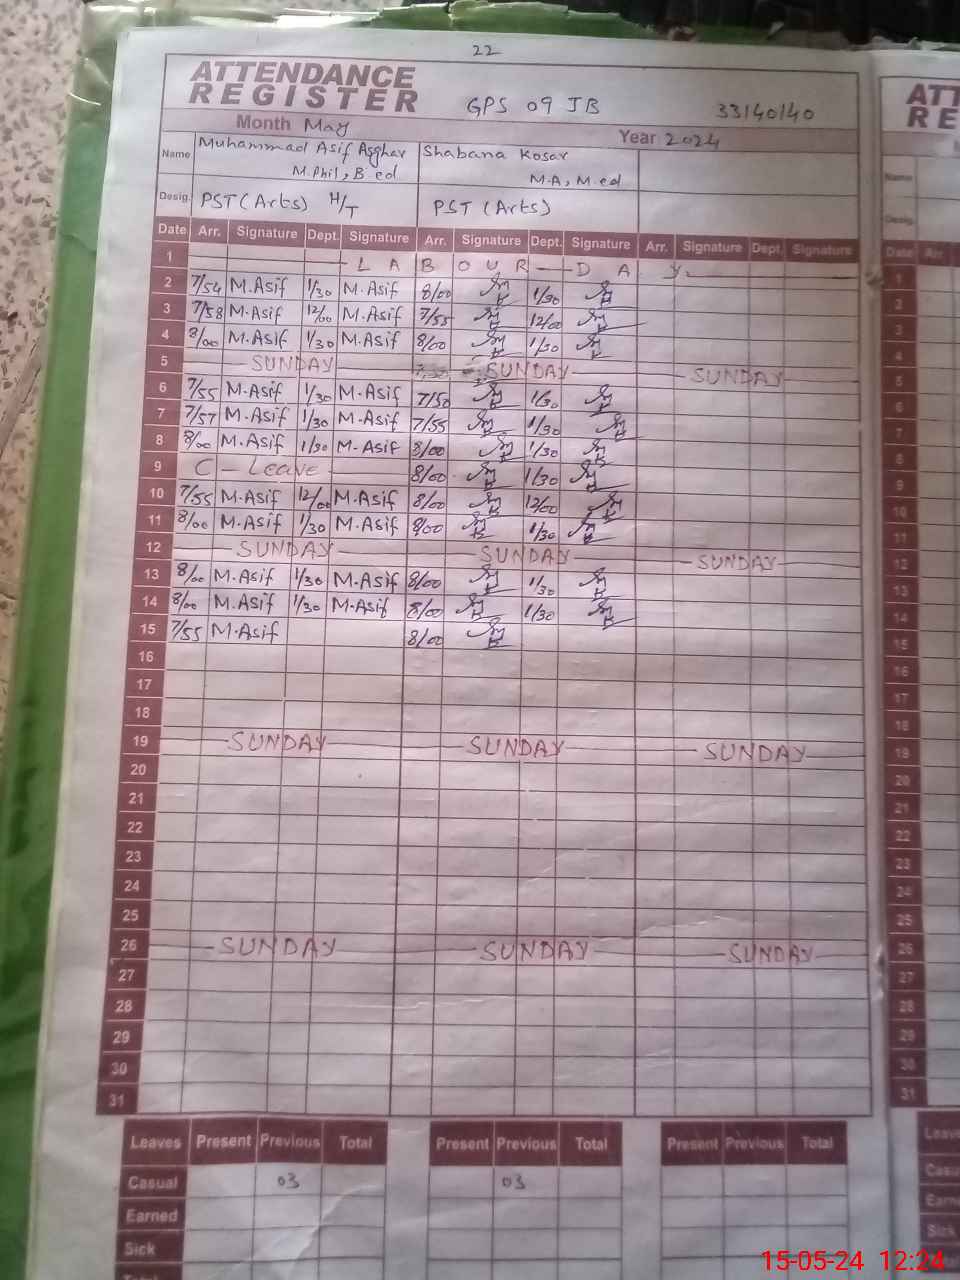 22
ATTENDANCE
REGISTER
GPS 09 JB
33140140
Month May
Year 2024
Name Muhammad Asif Asghar Shabana Kosar
M.Phil, B.ed M.A, M.ed
Desig. PST (Arts) H/T PST (Arts)
Date Arr. Signature Dept. Signature Arr. Signature Dept. Signature Arr. Signature Dept. Signature
1 LABOUR DAY
2 7/54 M.Asif 1/30 M.Asif 8/00 1/30
3 7/58 M.Asif 12/00 M.Asif 7/55 12/00
4 8/00 M.Asif 1/30 M.Asif 8/00 1/30
5 SUNDAY SUNDAY SUNDAY
6 7/55 M.Asif 1/30 M.Asif 7/50 1/30
7 7/57 M.Asif 1/30 M.Asif 7/55 1/30
8 8/00 M.Asif 1/30 M.Asif 8/00 1/30
9 C-Leave 8/00 1/30
10 7/55 M.Asif 12/00 M.Asif 8/00 12/00
11 8/00 M.Asif 1/30 M.Asif 8/00 1/30
12 SUNDAY SUNDAY SUNDAY
13 8/00 M.Asif 1/30 M.Asif 8/00 1/30
14 8/00 M.Asif 1/30 M.Asif 8/00 1/30
15 7/55 M.Asif 8/00
16
17
18
19 SUNDAY SUNDAY SUNDAY
20
21
22
23
24
25
26 SUNDAY SUNDAY SUNDAY
27
28
29
30
31
Leaves Present Previous Total Present Previous Total Present Previous Total
Casual 03 03
Earned
Sick
15-05-24 12:24